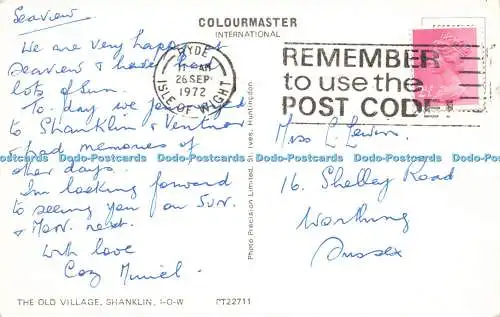 Seaview
COLOURMASTER
INTERNATIONAL
We are very happy at
Seaview & have had
lots of sun.
To-day we
to Shanklin & Ventnor
& had memories of
other days.
I'm looking forward
to seeing you on Sun.
& Mon. next.
With love
Muriel
RYDE
11-AM
26 SEP
1972
ISLE OF WIGHT
REMEMBER
to use the
POST CODE
Miss C. Lewin
16. Shelley Road
Worthing
Sussex
Photo Precision Limited, St. Ives, Huntingdon
Dodo-Postcards Dodo-Postcards Dodo-Postcards Dodo-Postcards Dodo-Postcards Dodo-Postcards
THE OLD VILLAGE, SHANKLIN, I-O-W
PT22711